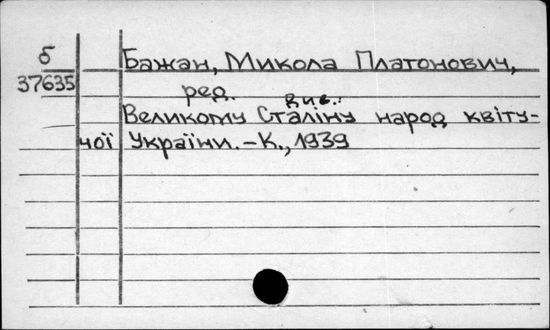 б Бажан, Микола Платонович,
37635
ред.
див.:
Великому Сталіну народ квіту-
чої України. – К., 1939